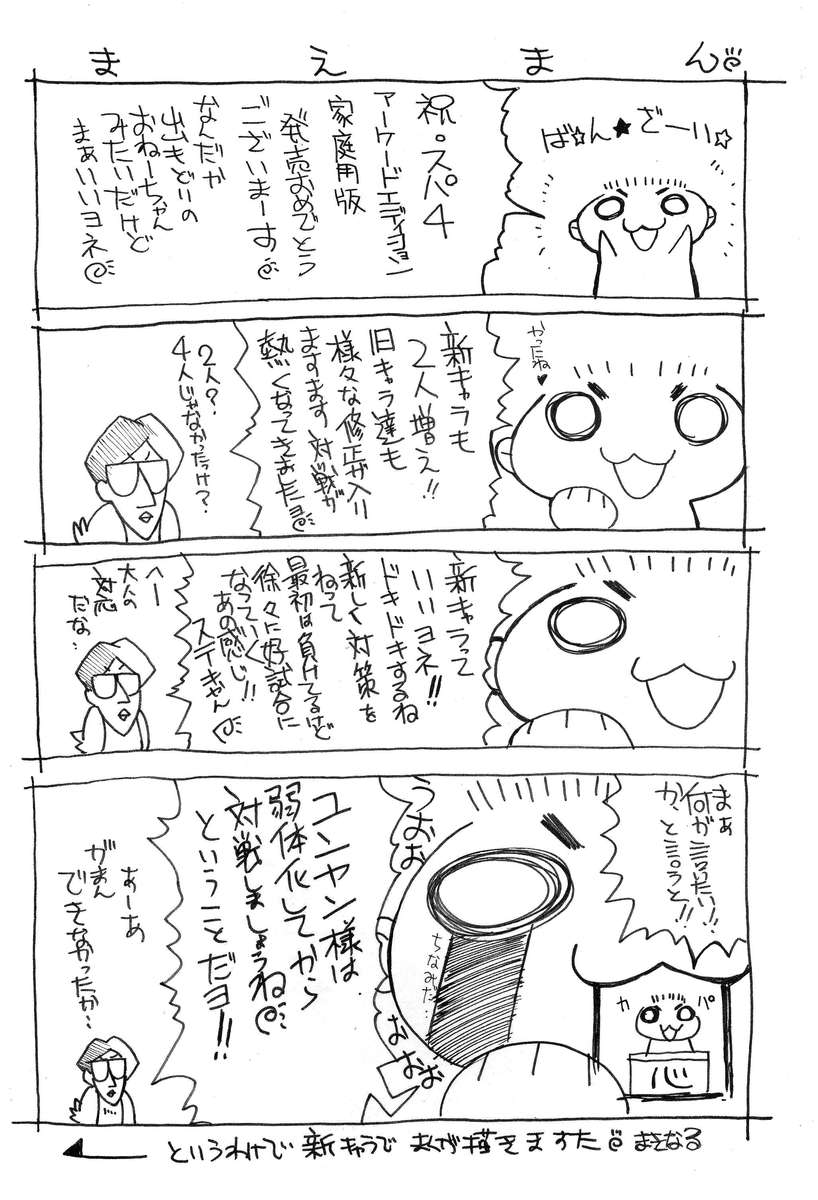 まえまん
ば☆ん★ざーい☆
祝。スパ4
アーケードエディション
家庭用版
発売おめでとう
ございまーす
なんだか
出もどりの
おねーちゃん
みたいだけど
まぁいいヨネ
かったね♥
新キャラも
2人増え!!
旧キャラ達も
様々な修正が入り
ますます対戦が
熱くなってきましたヨ
2人?
4人じゃなかったっけ?
新キャラって
いいヨネ!!
ドキドキするね
新しく対策を
ねって
最初は負けてるけど
徐々に好試合に
なっていく
あの感じ!!
ステキやん
へー
大人の
対応
だな…
まぁ
何が言いたい!!
かと言うと!!
カパ
心
うおお
ちなみだ…
なおおお
ユンヤン様は
弱体化してから
対戦しましょうね
ということだヨ!!
あーあ
がまん
できなかったか…
というわけで新キャラでまんが描きますた まさなる